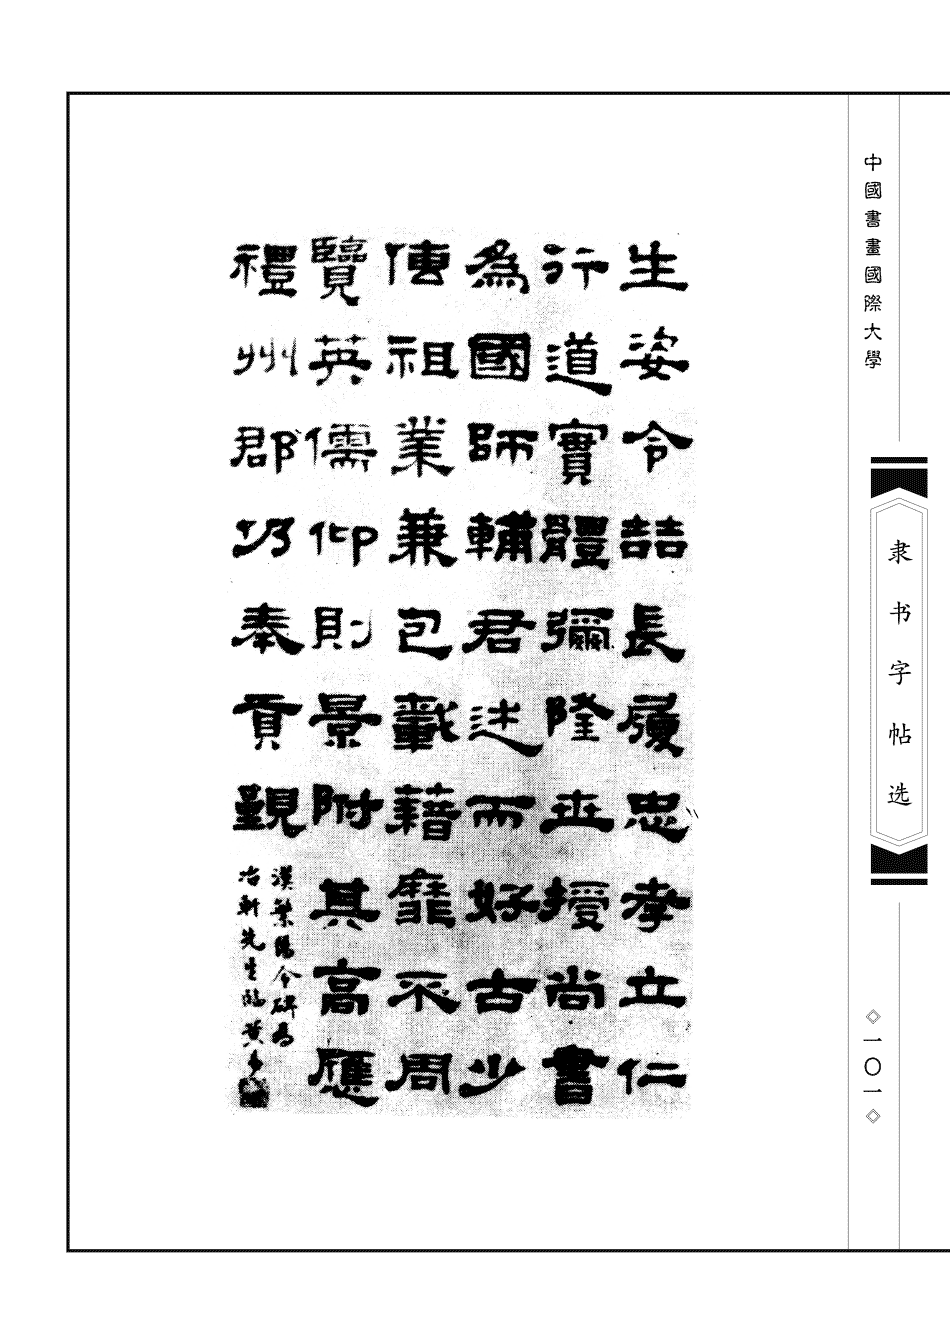 中國書畫國際大學
隶书字帖选
一〇一
生姿令喆長履忠孝立仁
行道實體彌隆世授尚書
為國師輔君述而好古少
傳祖業兼包載藉靡不周
覽英儒仰則景附其高應
禮州郡仍奉貢覲
漢繁陽令碑為
冶軒先生臨黃